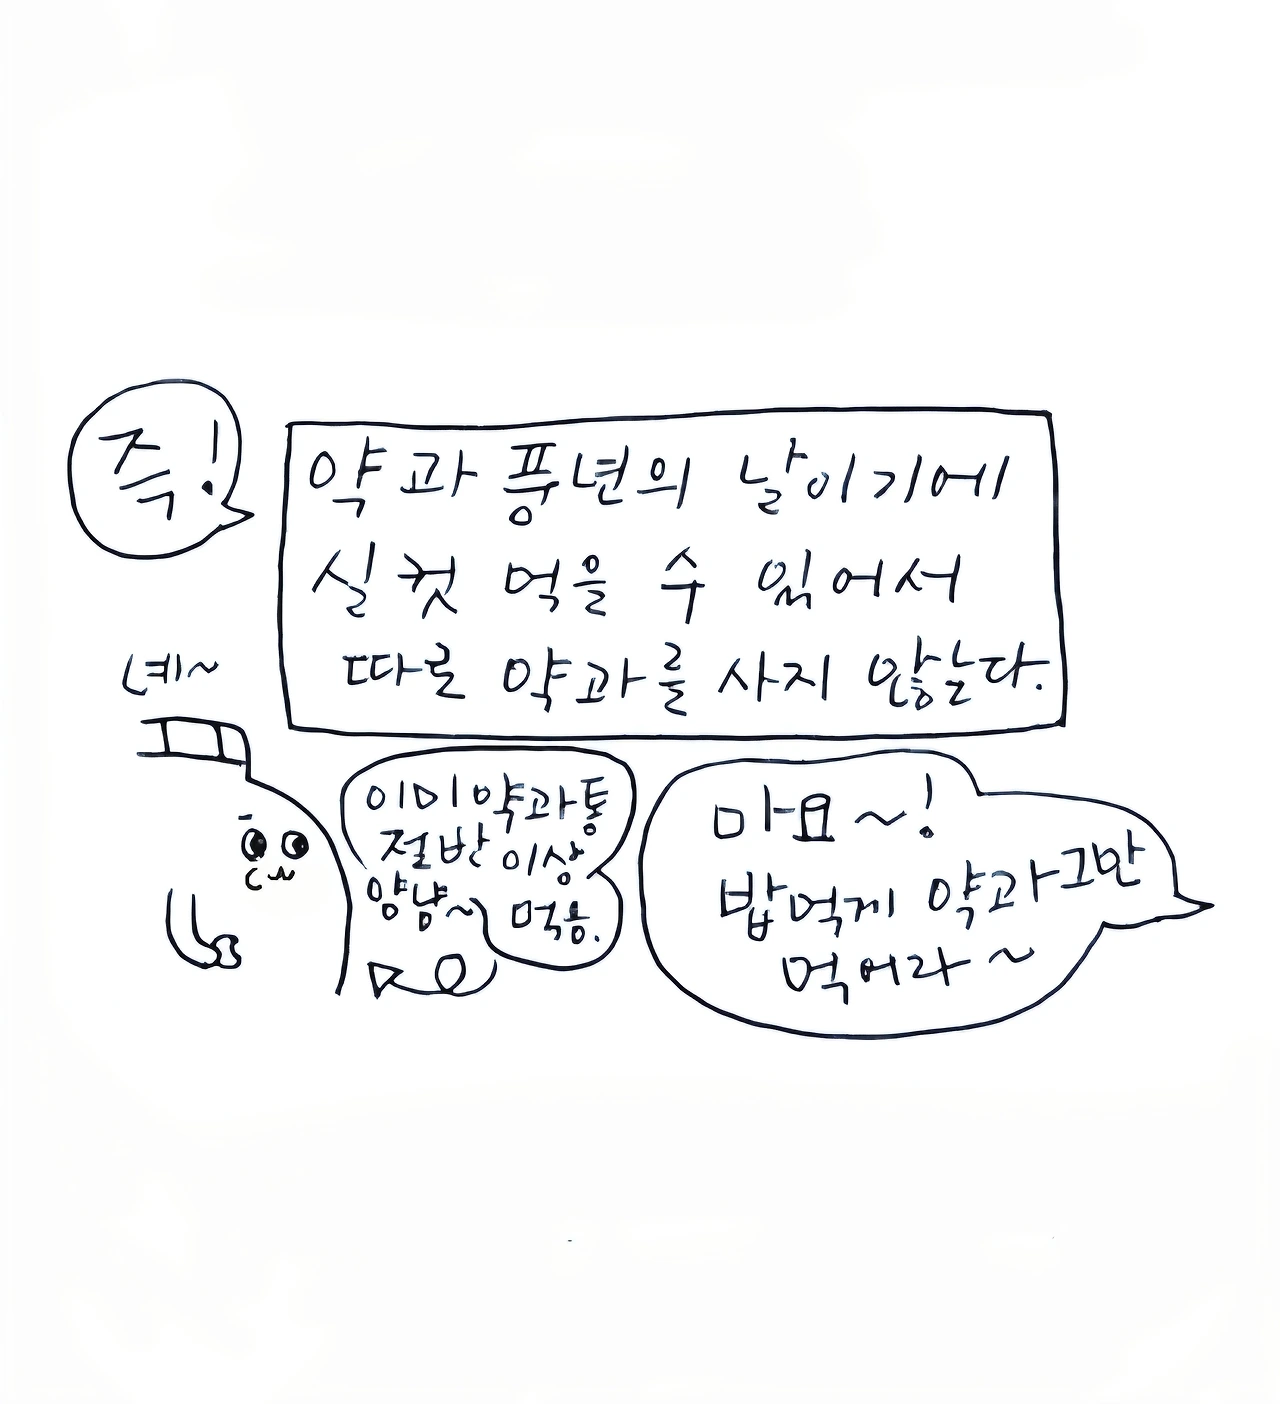 즉!
약과 풍년의 날이기에
실컷 먹을 수 있어서
따로 약과를 사지 않는다.
녜~
이미 약과통
절반 이상
먹음.
얌냠~
마요~!
밥먹게 약과그만
먹어라~